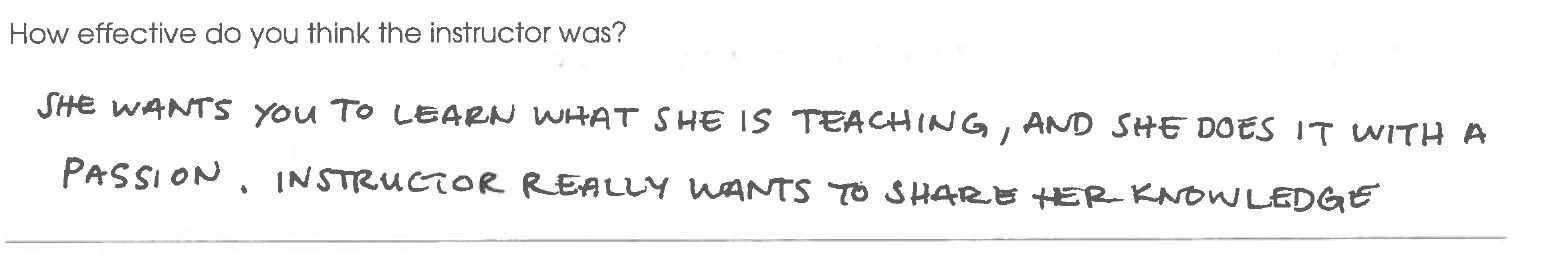 How effective do you think the instructor was?
SHE WANTS YOU TO LEARN WHAT SHE IS TEACHING, AND SHE DOES IT WITH A
PASSION. INSTRUCTOR REALLY WANTS TO SHARE HER KNOWLEDGE